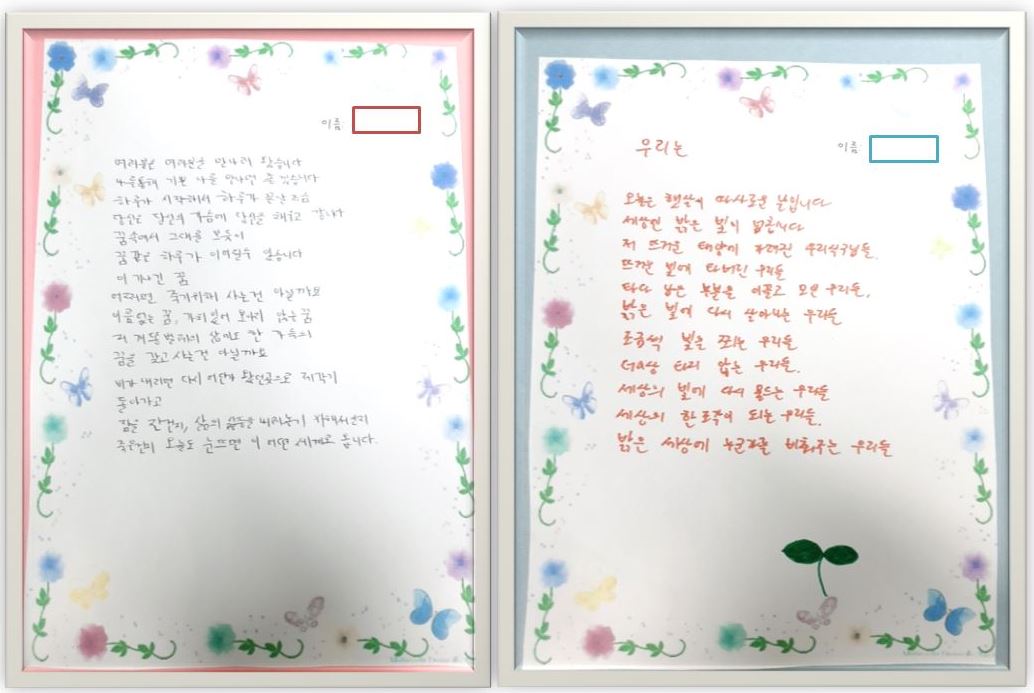 이름:
여러분은 여러분을 만나러 왔습니다
나를통해 기쁜 나를 만나면 좋겠습니다
하루가 시작해서 하루가
당신은 당신의 가슴에 당신을 채우고 갑니다
꿈속에서 그대를 보듯이
꿈같은 하루가 이어질수 있습니다
이 기나긴 꿈
어쩌면 죽기위해 사는건 아닐까요
이름없는 꿈, 가치있어 보이지 않는꿈
저 겨울 삶이도 한 가득의
꿈을 갖고 사는건 아닐까요
비가 내리면 다시 어딘가 왔던곳으로 제각기
돌아가고
잠을 잔건지, 삶의 내려놓기 위해서였는지
죽은건지 오늘도 눈뜨면 이 어떤 세계로 옵니다.
우리는
이름:
오늘은 햇살이 따사로운 날입니다
세상엔 밝은 빛이 넘칩니다
저 뜨거운 태양에 가려진 우리식구님들.
뜨거운 빛에 타버린 우리들
타다 남은 부분을 이끌고 모인 우리들.
밝은 빛에 다시 살아나는 우리들
조금씩 빛을 쪼이는 우리들
더이상 타지 않는 우리들.
세상의 빛에 다시 물드는 우리들
세상의 한조각이 되는 우리들.
밝은 세상에 누군가를 비춰주는 우리들